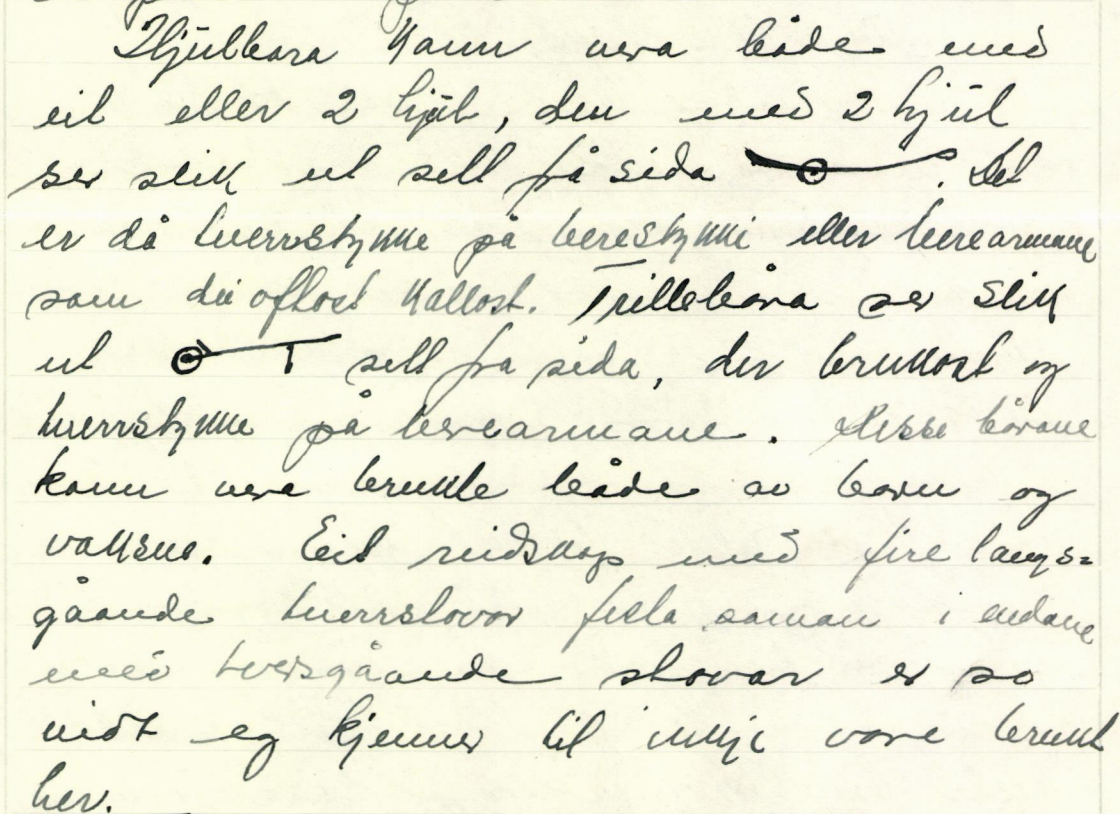 Hjulbara kann vera både med
eit eller 2 hjul, den med 2 hjul
ser slik ut sett frå sida . Det
er då tverrstykke på berestykki eller berearmane
som dei oftost kallost. Trillebåra ser slik
ut sett fra sida, der brukost og
tverrstykke på berearmane. Disse bårane
kann vera brukte både av born og
vaksne. Eit reidskap med fire langs=
gåande tverrstovor festa saman i endane
med tversgåande stovar er so
vidt eg kjenner til inkje vore brukt
her.